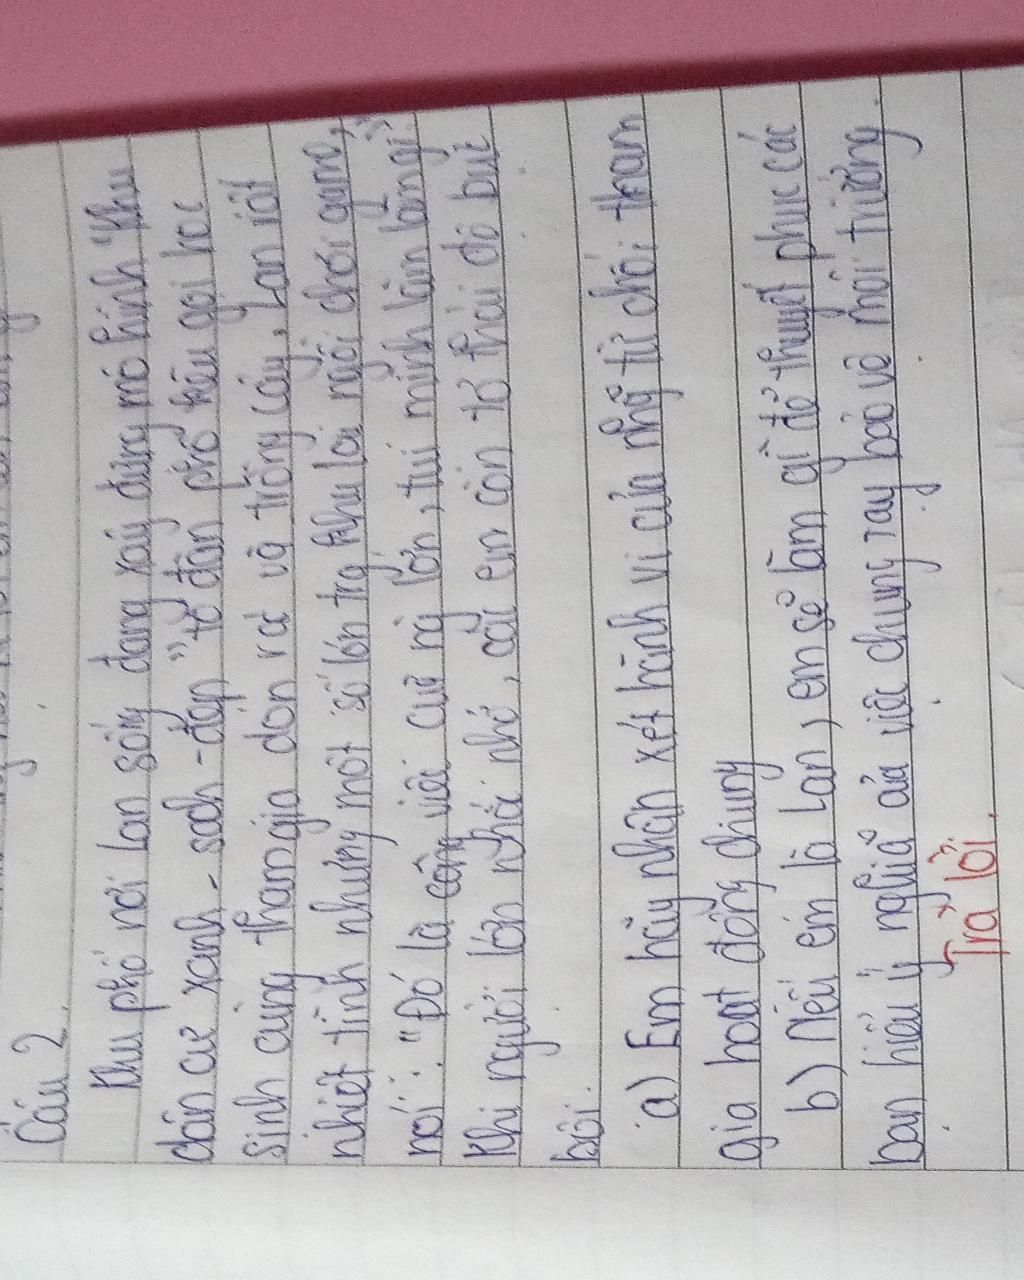 Câu 2.
Khu phố nơi Lan sống đang xây dựng mô hình "Khu
dân cư xanh - sạch - đẹp" tổ dân phố kêu gọi học
sinh cùng tham gia dọn vs và trồng cây, Lan rất
nhiệt tình nhưng một số lớn trg khu lại ngồi chơi game,
nói: "Đó là công việc của ng lớn, tụi mình làm làm gì"
Khi người lớn nhắc nhở, các em còn tỏ thái độ bực
bội.
a) Em hãy nhận xét hành vi của nhg từ chối tham
gia hoạt động chung
b) Nếu em là Lan, em sẽ làm gì để thuyết phục các
bạn hiểu ý nghĩa của việc chung tay bảo vệ môi trường.
Trả lời.